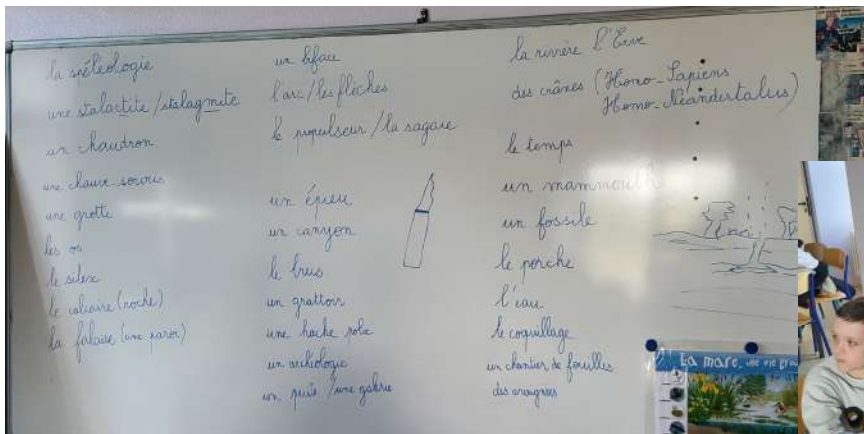 la spéléologie
une stalactite / stalagmite
un chaudron
une chauve-souris
une grotte
les os
le silex
le calcaire (roche)
la falaise (une paroi)
un biface
l'arc / les flèches
le propulseur / la sagaie
un épieu
un canyon
le
un grattoir
une hache polie
un archéologie
un puits / une galerie
la rivière l'Erve
des crânes (Homo-Sapiens
Homo-Néandertalus)
le temps
un mammouth
un fossile
le porche
l'eau
le coquillage
un chantier de fouilles
des araignées
La mare, une vie